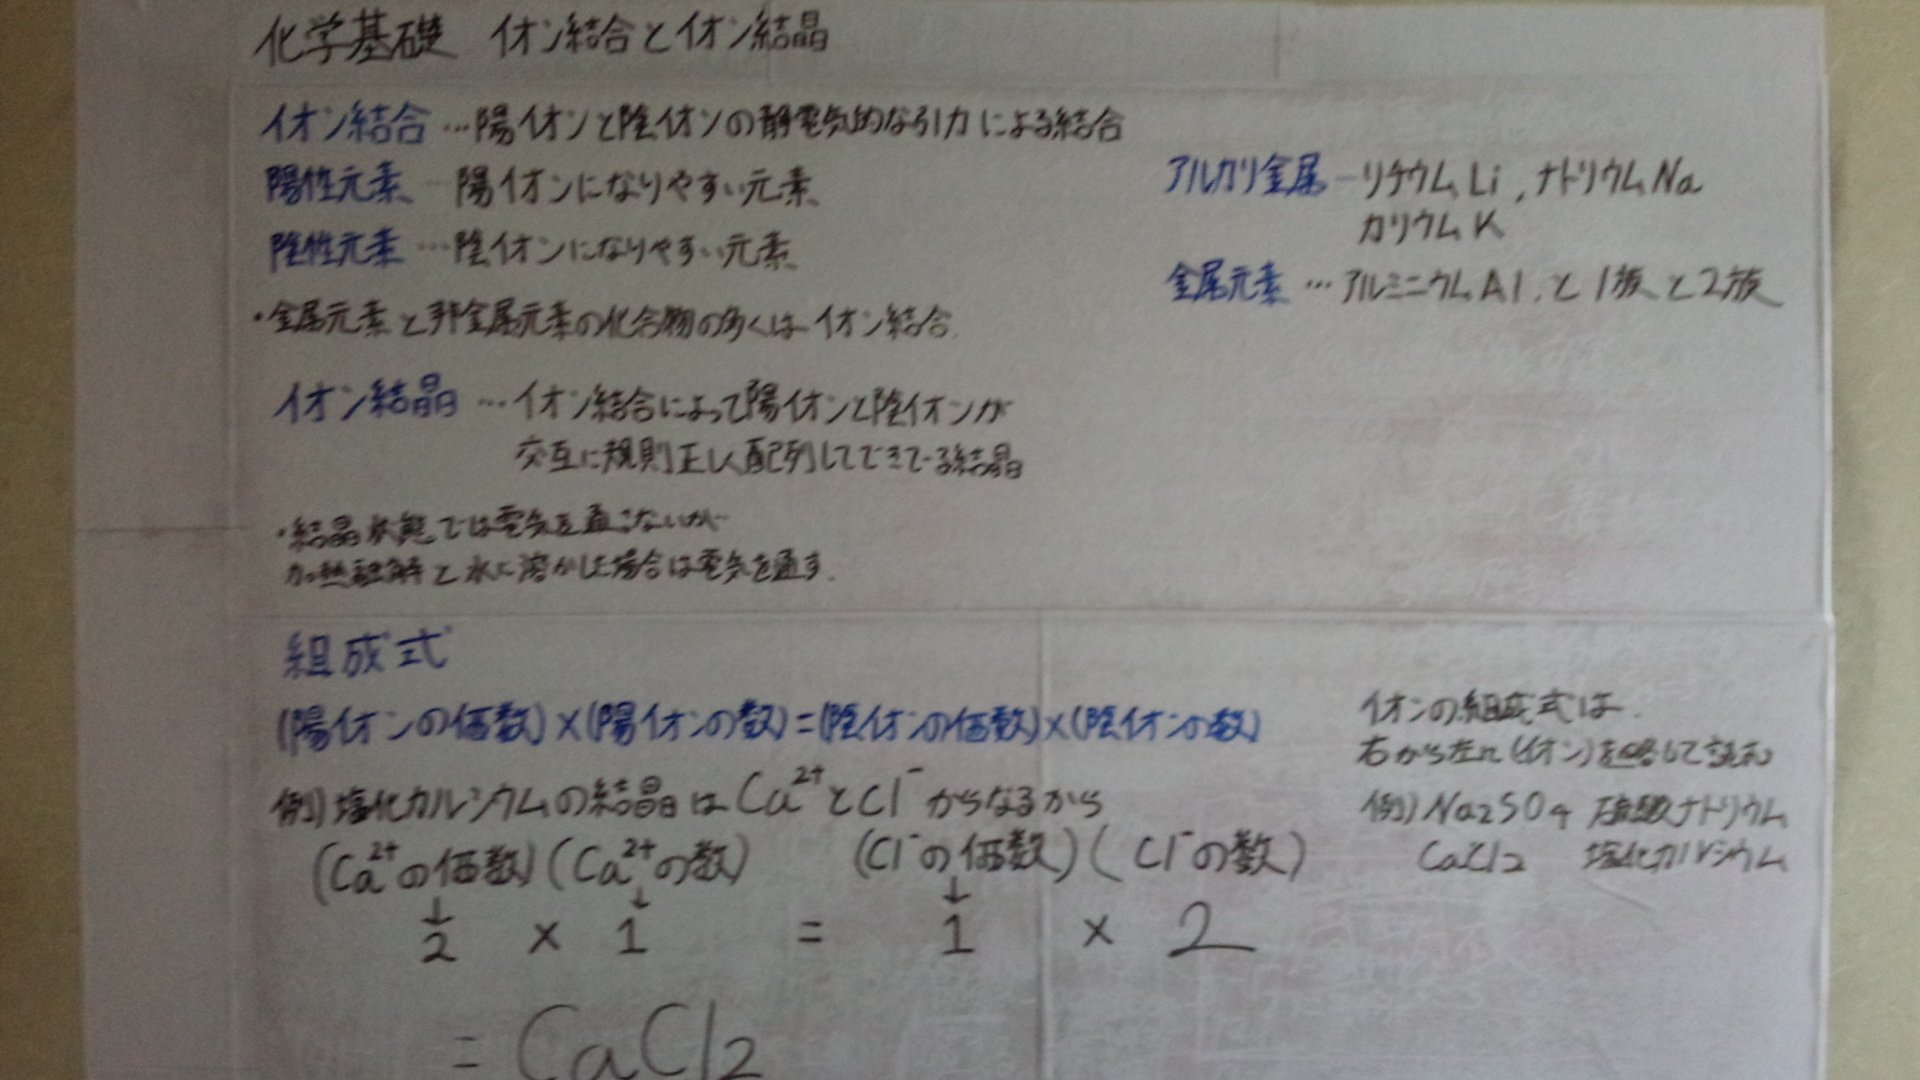 化学基礎 イオン結合とイオン結晶
イオン結合…陽イオンと陰イオンの静電気的な引力による結合
陽性元素…陽イオンになりやすい元素
陰性元素…陰イオンになりやすい元素
・金属元素と非金属元素の化合物の多くはイオン結合
アルカリ金属…リチウムLi，ナトリウムNa
カリウムK
金属元素…アルミニウムAl，と1族と2族
イオン結晶…イオン結合によって陽イオンと陰イオンが
交互に規則正しく配列してできてる結晶
・結晶状態では電気を通さないが
加熱融解と水に溶かした場合は電気を通す．
組成式
(陽イオンの価数)×(陽イオンの数)=(陰イオンの価数)×(陰イオンの数)
例)塩化カルシウムの結晶はCa²⁺とCl⁻からなるから
(Ca²⁺の価数)(Ca²⁺の数) (Cl⁻の価数)(Cl⁻の数)
↓ ↓ ↓
2 × 1 = 1 × 2
= CaCl2
イオンの組成式は．
右から左に(イオン)を略して読む
例)Na2SO4 硫酸ナトリウム
CaCl2 塩化カルシウム